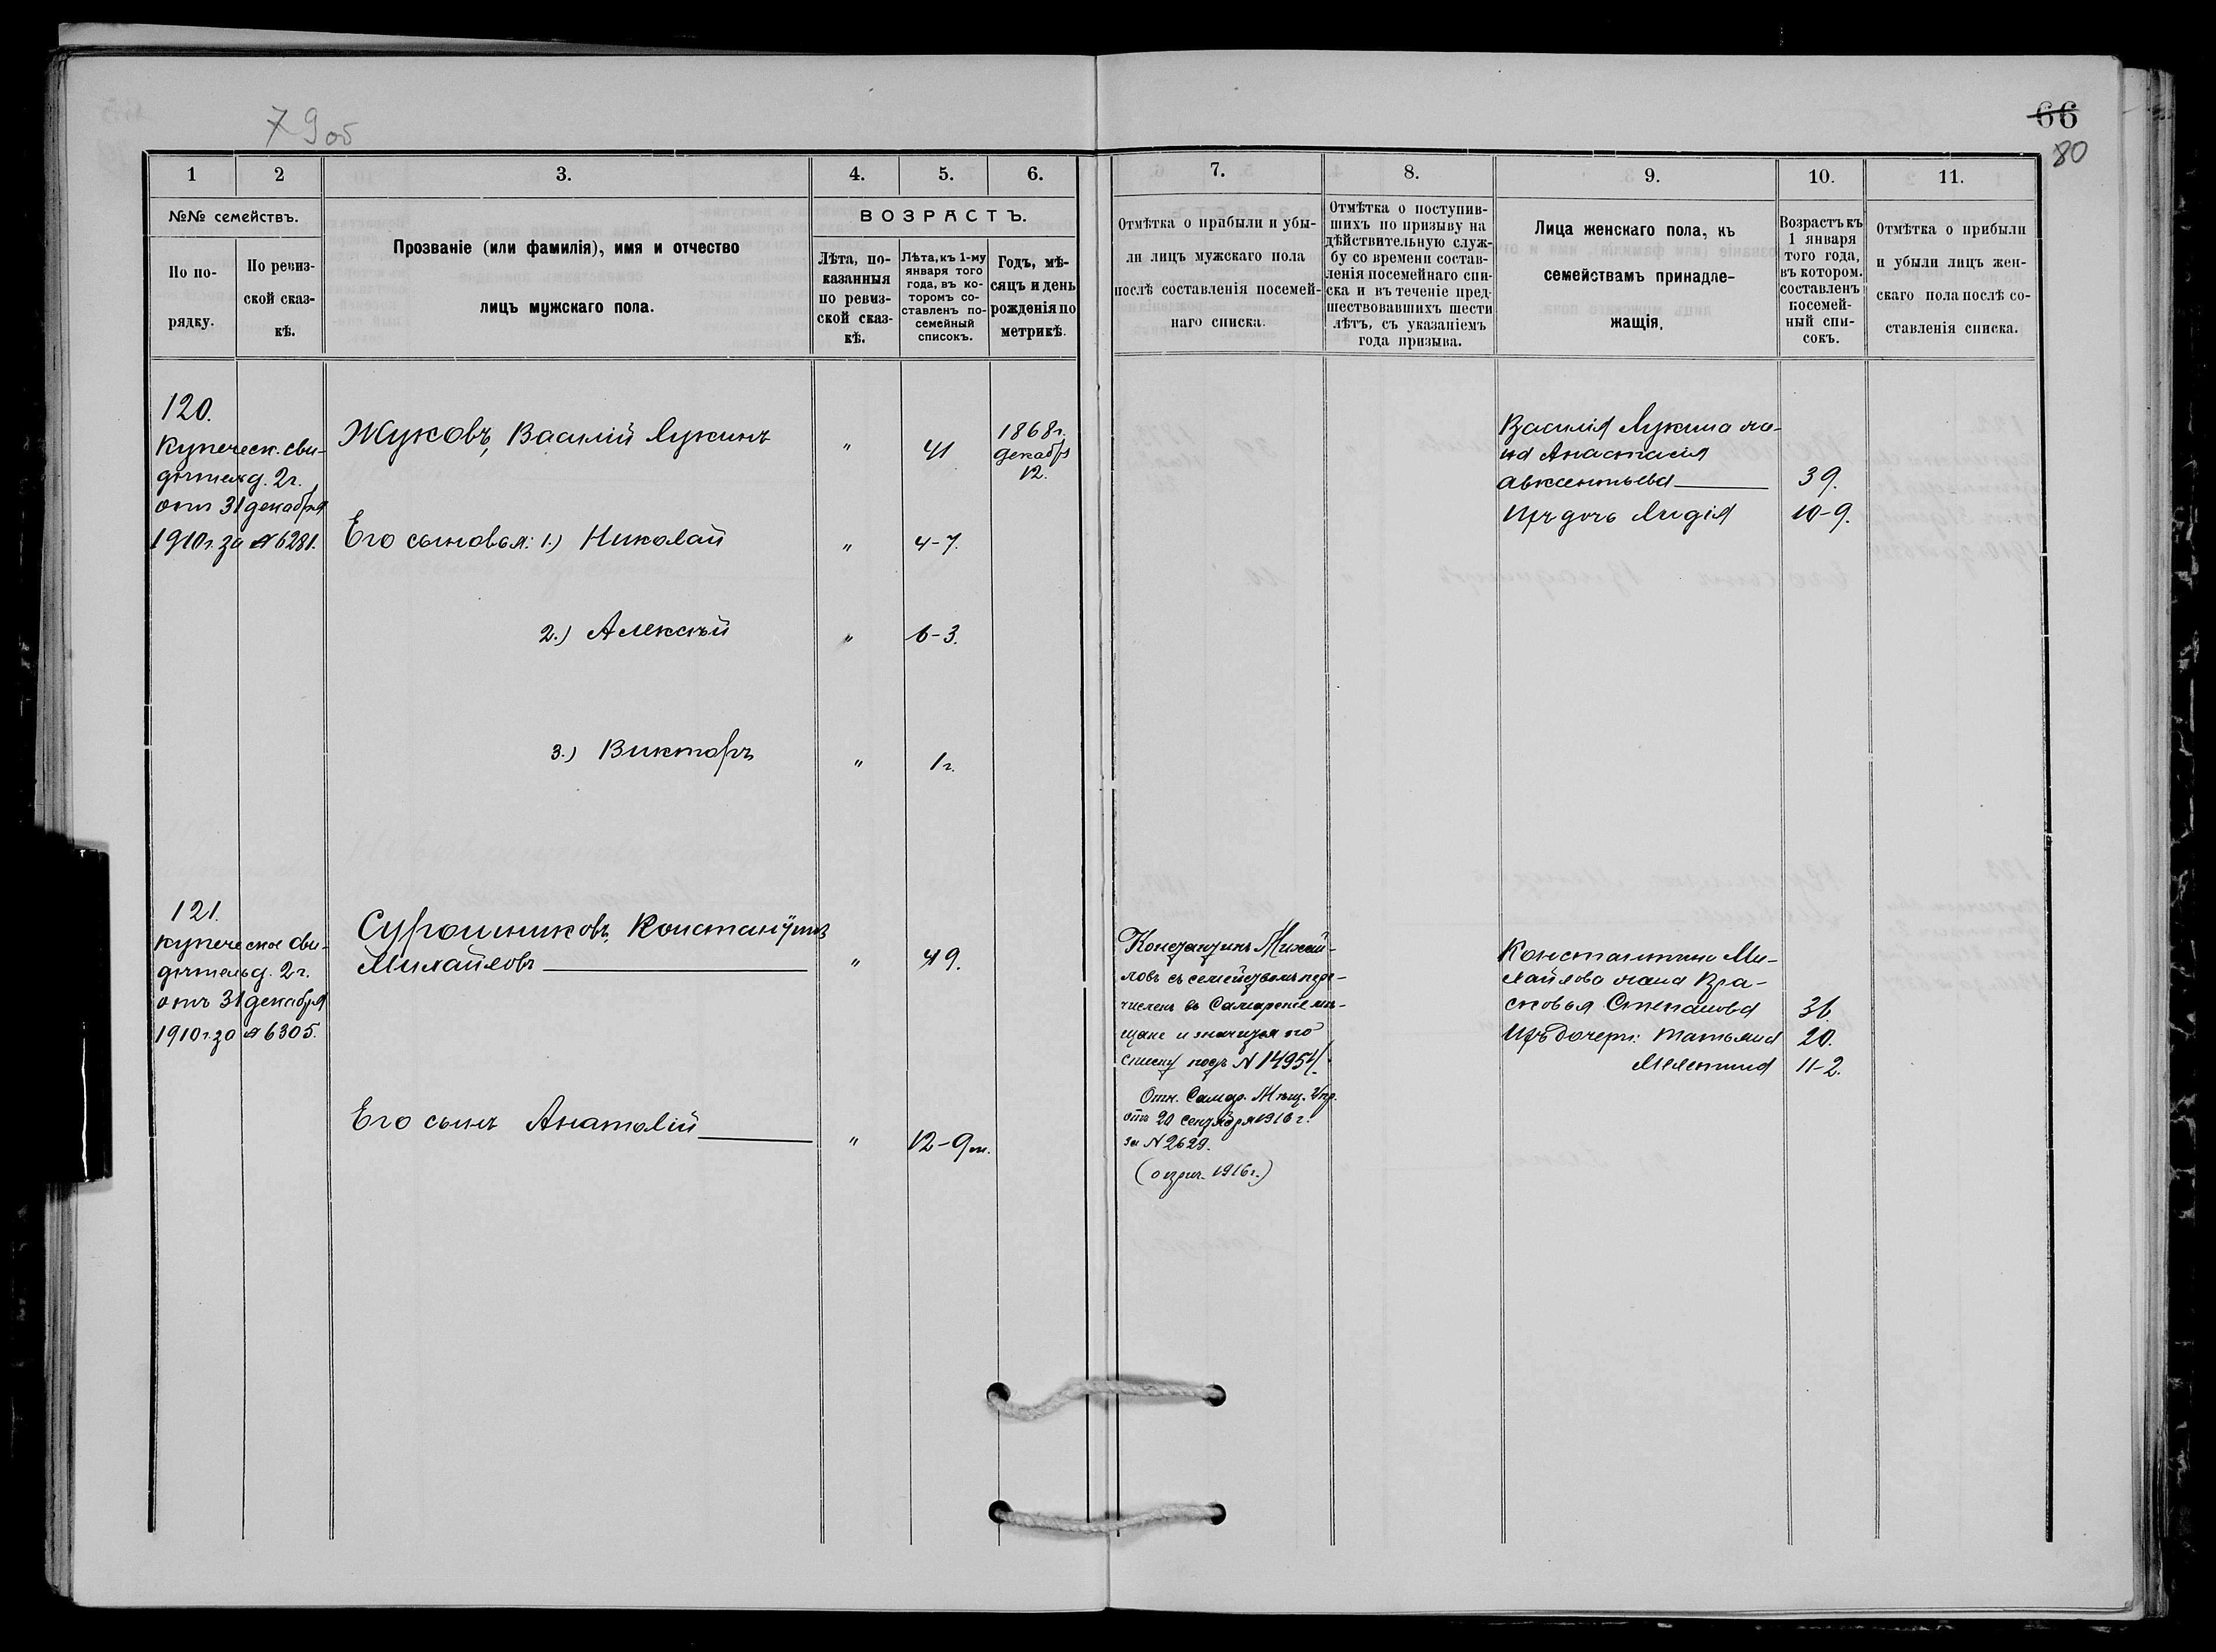 79об
66
80
1
2
3.
4.
5.
6.
7.
8.
9.
10.
11.
№№ семействъ.
По по-
рядку.
По ревиз-
ской сказ-
кѣ.
Прозваніе (или фамилія), имя и отчество
лицъ мужскаго пола.
ВОЗРАСТЪ.
Лѣта, по-
казанныя
по ревиз-
ской сказ-
кѣ.
Лѣта, къ 1-му
января того
года, въ ко-
торомъ со-
ставленъ по-
семейный
списокъ.
Годъ, мѣ-
сяцъ и день
рожденія по
метрикѣ.
Отмѣтка о прибыли и убы-
ли лицъ мужскаго пола
послѣ составленія посемей-
наго списка.
Отмѣтка о поступив-
шихъ по призыву на
дѣйствительную служ-
бу со времени состав-
ленія посемейнаго спи-
ска и въ теченіе пред-
шествовавшихъ шести
лѣтъ, съ указаніемъ
года призыва.
Лица женскаго пола, къ
семействамъ принадле-
жащія.
Возрастъ къ
1 января
того года,
въ котором.
составленъ
посемей-
ный спи-
сокъ.
Отмѣтка о прибыли
и убыли лицъ жен-
скаго пола послѣ со-
ставленія списка.
120.
Купеческ. сви-
дѣтельд. 2 г.
отъ 31 декабря
1910 г. за № 6281.
Жуковъ, Василій Лукинъ
„
41
1868 г.
декабря
12.
Его сыновья: 1.) Николай
„
4-7.
2.) Алексѣй
„
6-3.
3.) Викторъ
„
1 г.
Василія Лукина же-
на Анастасія
Авксентьева
39.
Ихъ дочь Лидія
10-9.
121.
Купеческое сви-
дѣтельд. 2 г.
отъ 31 декабря
1910 г. за № 6305.
Сурошниковъ, Константинъ
Михайловъ
„
49.
Его сынъ Анатолій
„
12-9 м.
Константинъ Михай-
ловъ съ семействомъ пере-
численъ въ Самарскіе мѣ-
щане и значится по
списку подъ № 14954.
Отн. Самар. Мѣщ. Упр.
отъ 20 сентября 1916 г.
за № 2629.
(о при. 1916 г.)
Константина Ми-
хайлова жена Пра-
сковья Степанова
36.
Ихъ дочери: Татьяна
20.
11-2.